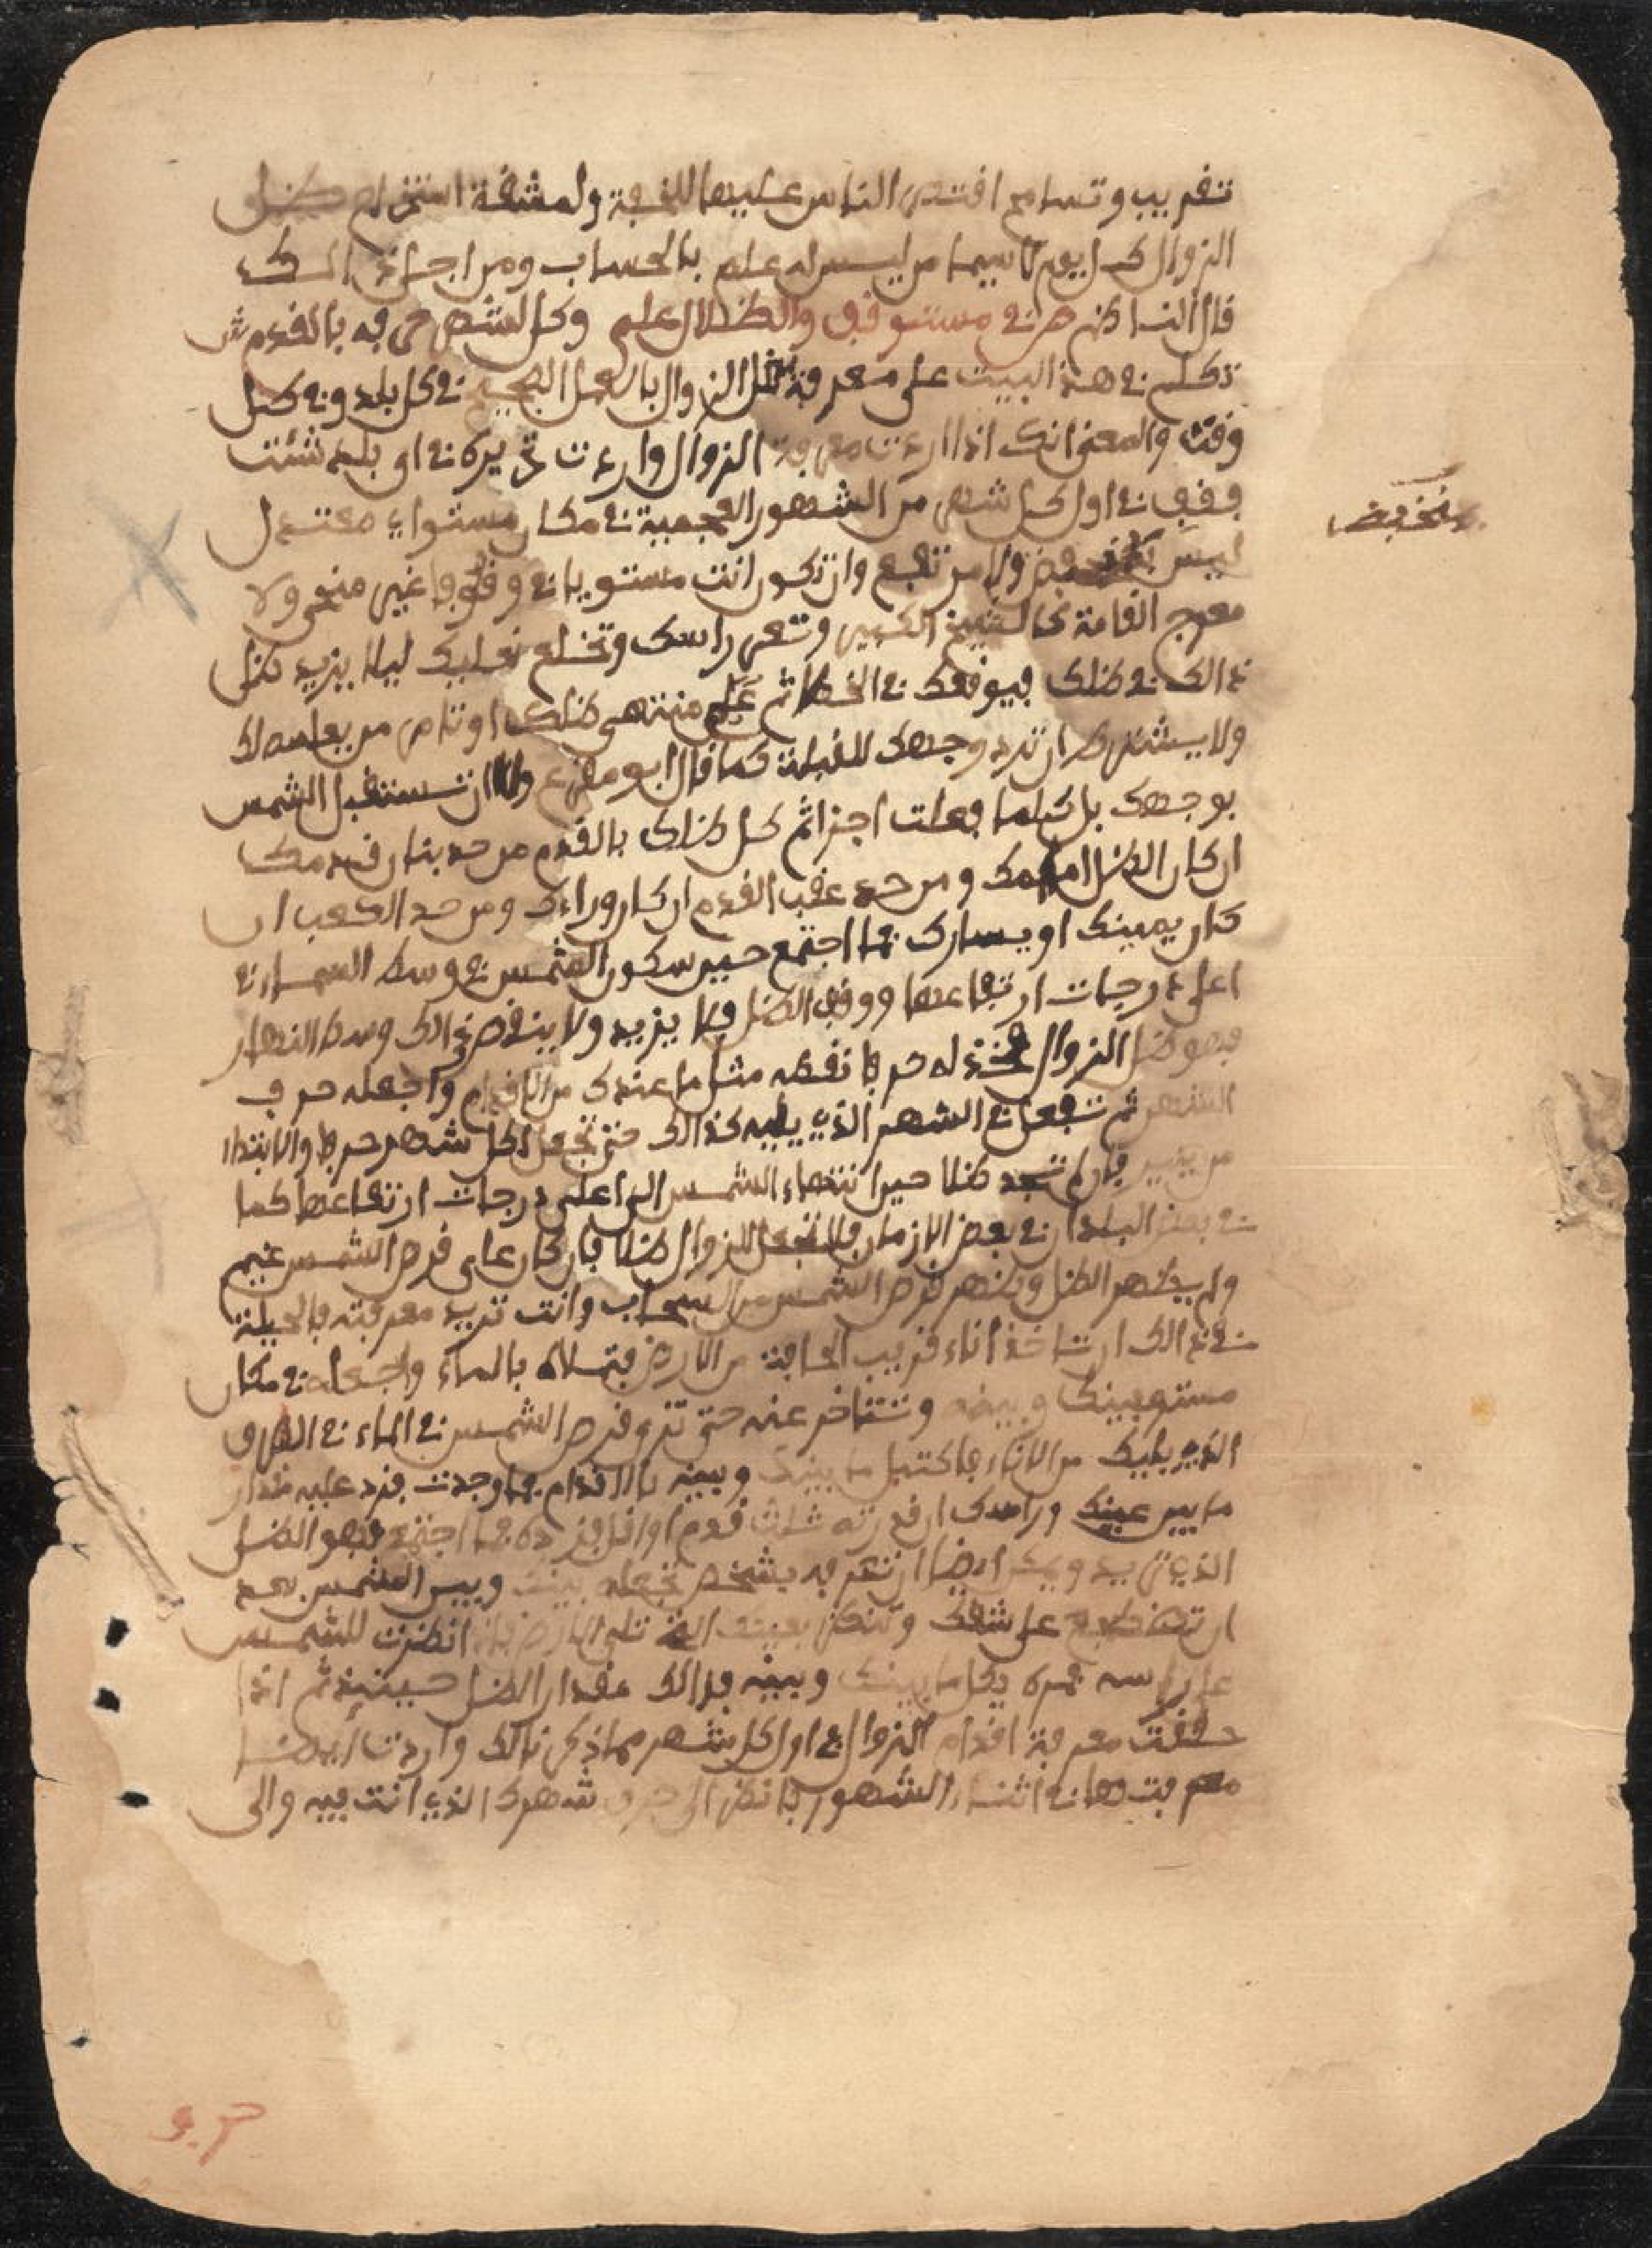 تقريب وتسامح اقتصر الناس عليها للخفة ولمشقة استخراج ظل
الزوال كل يوم لاسيما من ليس له علم بالحساب ومن اجل ذالك
قال الناظم في مستو قف والظلال علم وكل لشهر حرفه بالقدم ش
تكلم في هذا البيت على معرفة ظل الزوال بالعمل الصحيح في كل بلد وفي كل
وقت والمعنى انك اذا اردت معرفة الزوال واردت تحريره في اي بلد شئت
فقف في اول كل شهر من الشهور العجمية في مكان مستواي معتدل
ليس بمنخفض ولا مرتفع وان تكون انت مستويا في وقوفك غير منحن ولا
معوج القامة كالشيخ الكبير وتعري راسك وتخلع نعليك ليلا يزيد
ذالك في ظلك فيوقعك في الخطا ثم علم منتهى ظلك او تامر من يعلمه لك
ولا يشترط ان ترد وجهك للقبلة كما قال ابو مقرع ولا ان تستقبل الشمس
بوجهك بل كيلما فعلت اجزا ثم كل ظلك بالقدم من حد بنان قدمك
ان كان الظل امامك ومن حد عقب القدم ان كان وراءك ومن حد الكعب ان
كان يمينك او يسارك فما اجتمع حين سكون الشمس في وسط السماء في
اعلى درجات ارتفاعها ووقف الظل فلا يزيد ولا ينقص فذالك وسط النهار
فهو ظل الزوال فخذ له حرفا نقطه مثل ما عندك من الاقدام واجعله حرف
الشهر ثم تفعل في الشهر الذي يليه كذالك حتى تجعل لكل شهر حرفا والابتداء
من ينير فان لم تجد ظلا حين انتهاء الشمس الى اعلى درجات ارتفاعها كما
في بعض البلدان في بعض الازمان فلا تجعل للزوال ظلا فان كان على قرص الشمس غيم
ولم يظهر الظل ويظهر قرص الشمس من السحاب وانت تريد معرفته فالحيلة
في ذالك ان تاخذ اناء قريب الحافة من الارض فتملاه بالماء واجعله في مكان
مستو بينك وبينه وتتاخر عنه حتى ترى قرص الشمس في الماء في الطرف
الذي يليك من الاناء فاكتيل ما بينك وبينه بالاقدام فما وجدت فزد عليه مقدار
ما بين عينيك وراسك ارفع زنه ثلث قدم او اقل فزده فما اجتمع فهو الظل
الذي تريد ويمكن ايضا ان تعرفه بشخص تجعله بينك وبين الشمس بعد
ان تضطجع على شقك وتنظر بعينك التي تلي الارض فاذا نظرت للشمس
على راسه فمره يكل ما بينك وبينه فذالك مقدار الظل حينئذ ثم اذا
حققت معرفة اقدام الزوال في اول كل شهر مما ذكر نالك واردت ايضا
معرفتها في اثناء الشهور فانظر الى حرف شهرك الذي انت فيه والى
بمنخفض